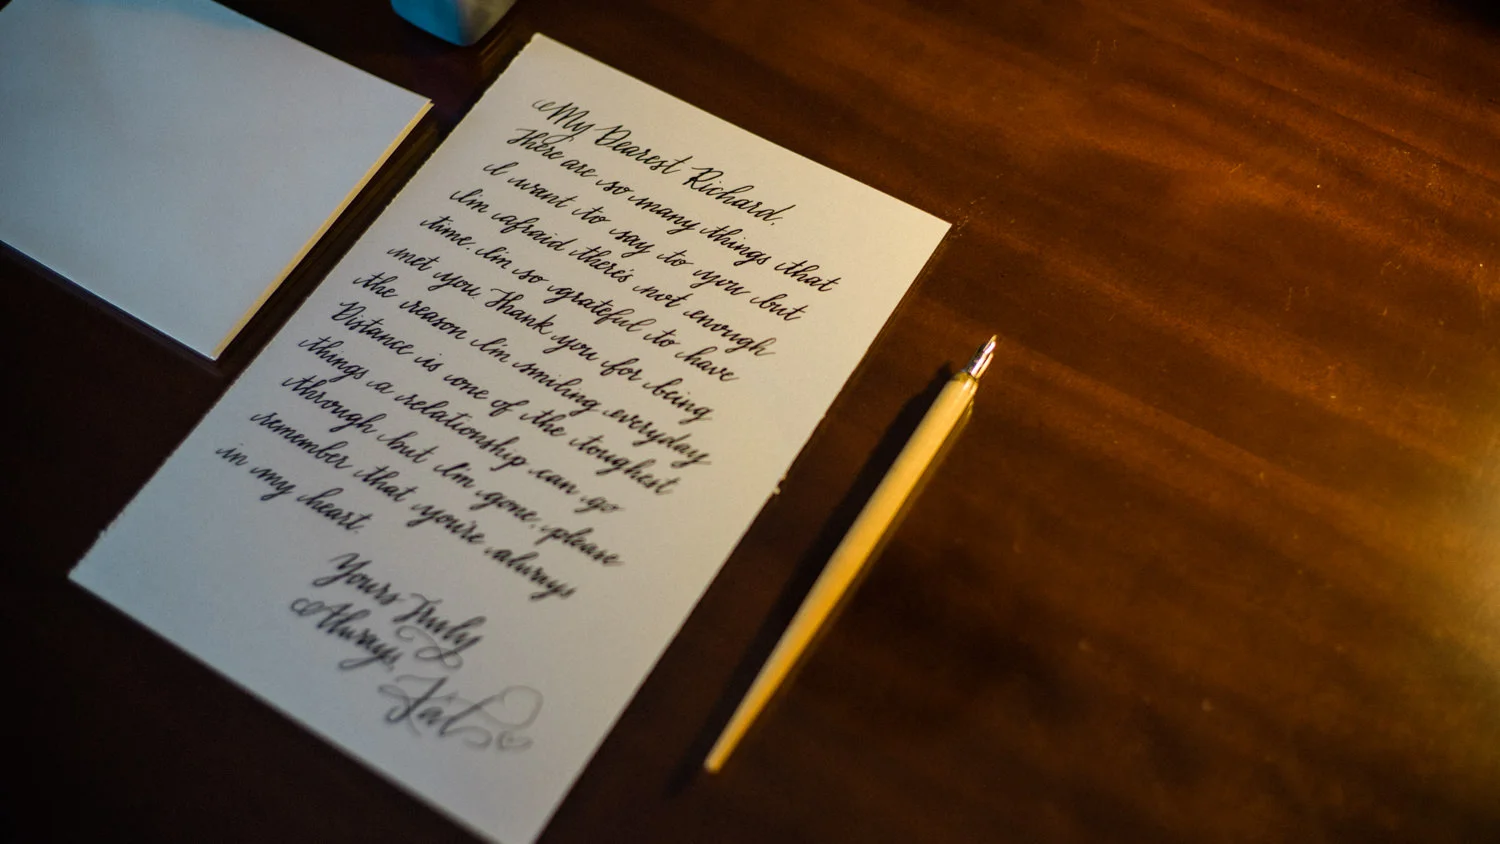 My Dearest Richard,
There are so many things that
I want to say to you but
I'm afraid there's not enough
time. I'm so grateful to have
met you. Thank you for being
the reason I'm smiling everyday
Distance is one of the toughest
things a relationship can go
through but I'm gone, please
remember that you're always
in my heart.
Yours Truly
Always,